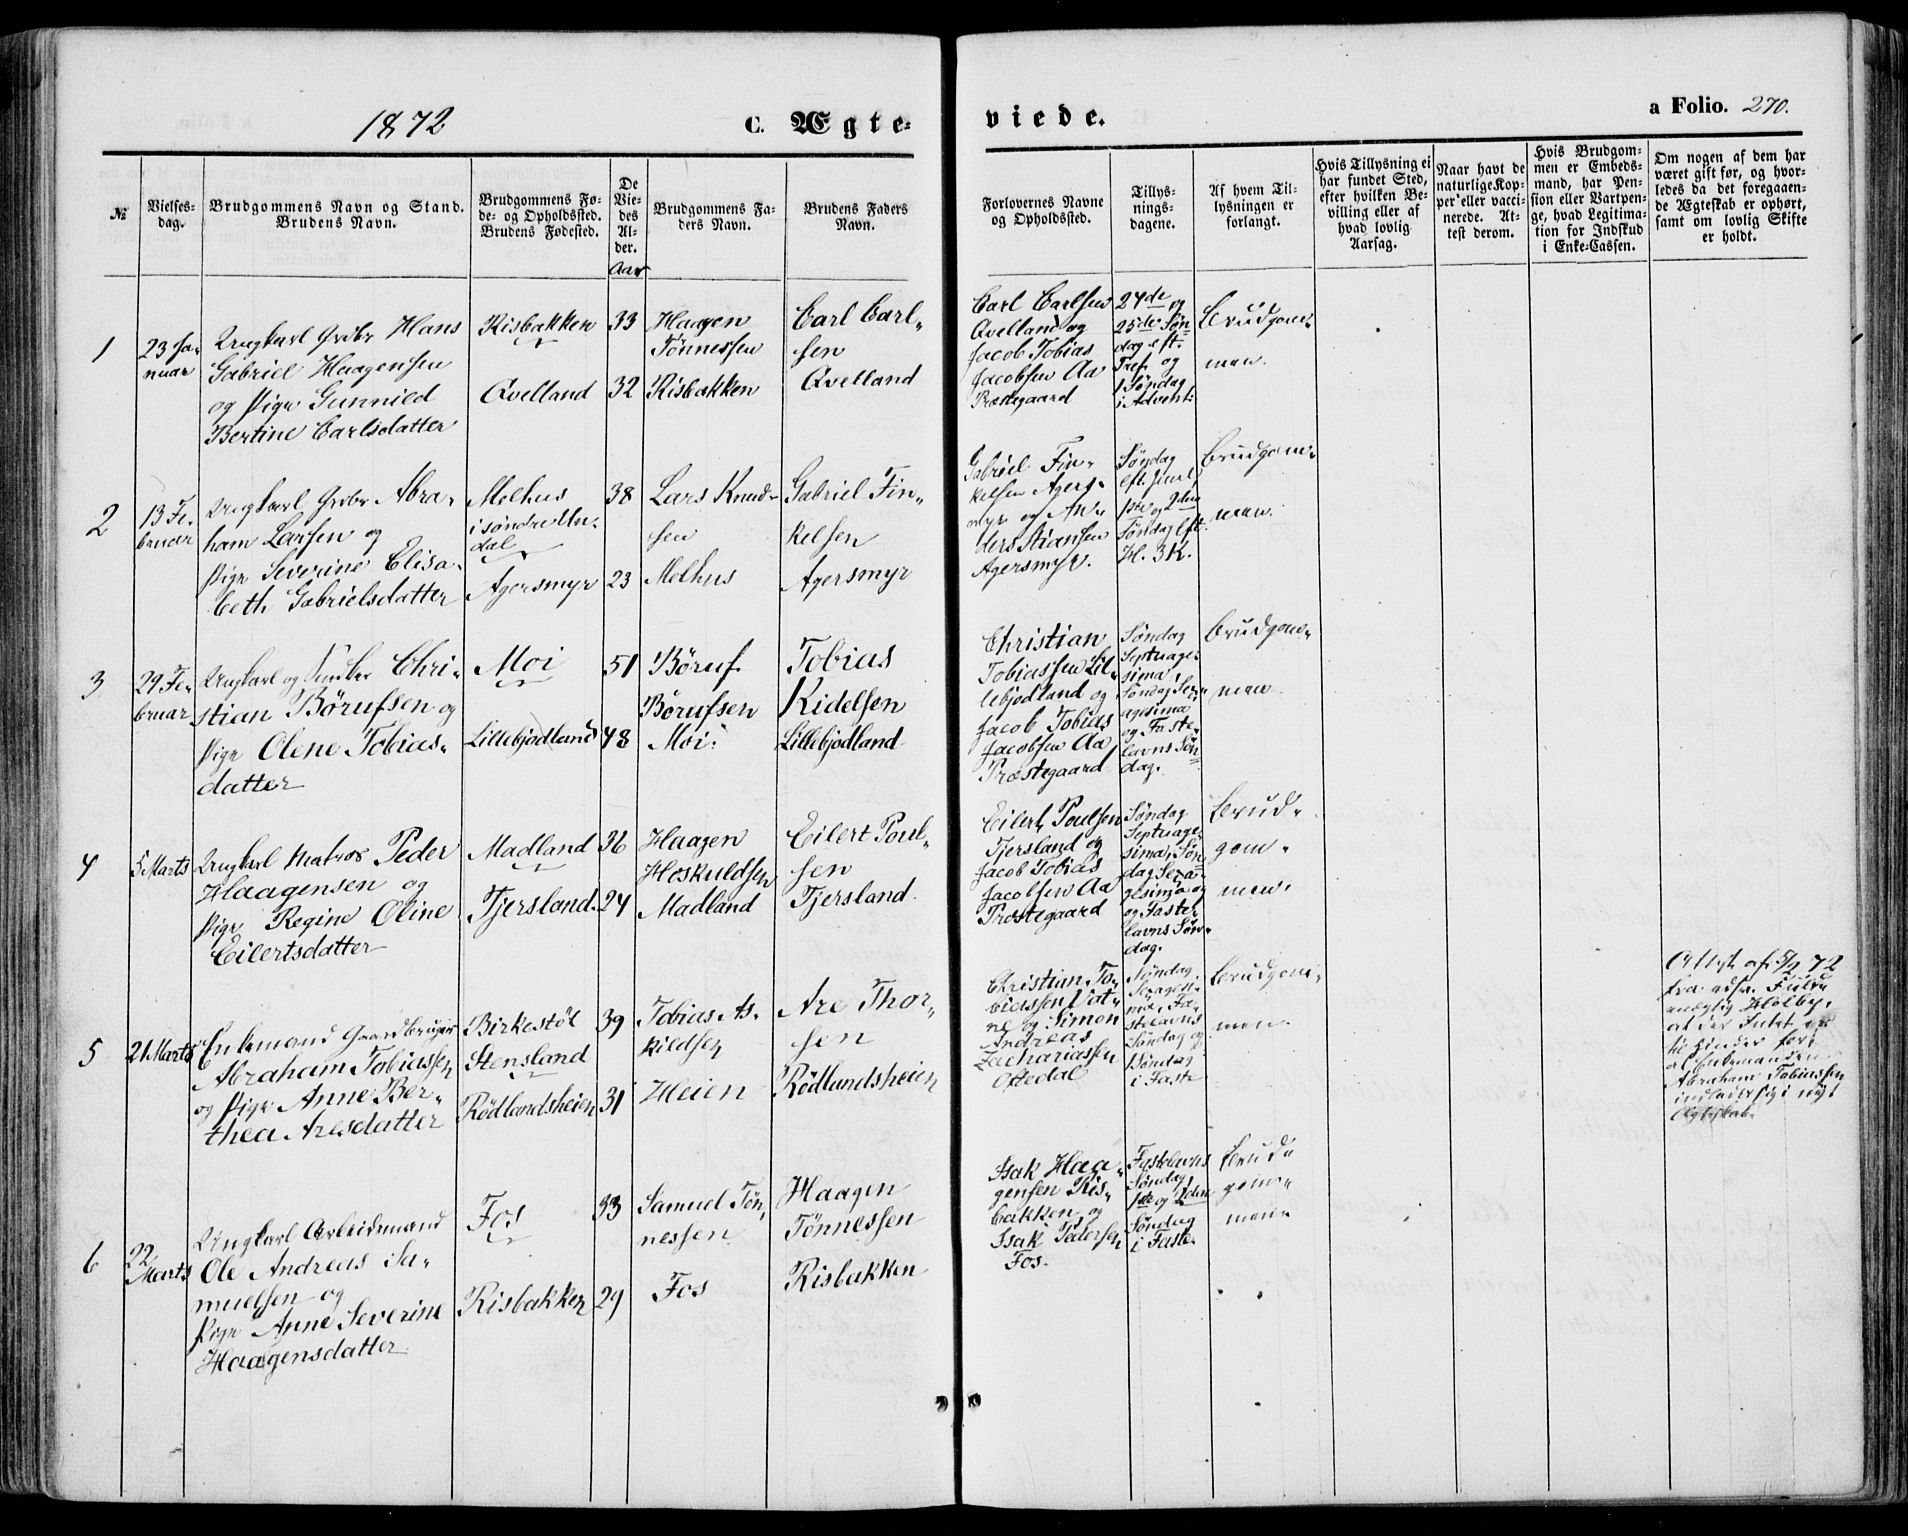 1872
C. Ægte-
viede.
a Folio. 270.
№
Vielses-
dag.
Brudgommens Navn og Stand.
Brudens Navn.
Brudgommens Fø-
de- og Opholdssted.
Brudens Fødested.
De
Vie-
des
Al-
der.
Aar
Brudgommens Fa-
ders Navn.
Brudens Faders
Navn.
Forlovernes Navne
og Opholdssted.
Tillys-
nings-
dagene.
Af hvem Til-
lysningen er
forlangt.
Hvis Tillysning ei
har fundet Sted,
efter hvilken Be-
villing eller af
hvad lovlig
Aarsag.
Naar havt de
naturlige Kop-
per eller vacci-
nerede. At-
test derom.
Hvis Brudgom-
men er Embeds-
mand, har Pen-
sion eller Vartpen-
ge, hvad Legitima-
tion for Indskud
i Enke-Cassen.
Om nogen af dem har
været gift før, og hvor-
ledes da det foregaaen-
de Ægteskab er ophørt,
samt om lovlig Skifte
er holdt.
1
23 Ja-
nuar
Ungkarl Grdbr Hans
Gabriel Haagensen
og Pige Gunnild
Bertine Carlsdatter
Risbakken
Qvelland
33
32
Haagen
Tönnessen
Risbakken
Carl Carl-
sen
Qvelland
Carl Carlsen
Qvelland og
Jacob Tobias
Jacobsen Aa
Præstegaard
24de og
25de Søn
dag eft.
Tref. og
1 Søndag
i Advent:
Brudgom-
men.
2
13 Fe-
bruar
Ungkarl Grdbr Abra-
ham Larsen og
Pige Severine Elisa-
beth Gabrielsdatter
Melhus
i søndre Un-
dal
Agersmyr
38
23
Lars Knud-
sen
Melhus
Gabriel Fin-
kelsen
Agersmyr
Gabriel Fin-
kelsen Agers-
myr og An-
ders Stiansen
Agersmyr.
Søndag
eft. Juul,
1ste og 2den
Søndag eft.
H. 3 K.
Brudgom-
men.
3
29 Fe-
bruar
Ungkarl og Chri-
stian Börufsen og
Pige Olene Tobias-
datter
Moi
Lillebjodland
51
48
Böruf
Börufsen
Moi.
Tobias
Kidelsen
Lillebjodland
Christian
Tobiassen Lil-
lebjodland og
Jacob Tobias
Jacobsen Aa
Præstegaard
Søndag
Septuage-
sima,
Søndag Sex-
agesima
og Faste-
lavns Søn
dag.
Brudgom-
men.
4
5 Marts
Ungkarl Matros Peder
Haagensen og
Pige Regine Oline
Eilertsdatter
Madland
Tjersland.
36
24
Haagen
Hoskuldsen
Madland
Eilert Poul-
sen
Tjersland.
Eilert Poulsen
Tjersland og
Jacob Tobias
Jacobsen Aa
Præstegaard
Søndag
Septuage-
sima, Søn
dag Sexa-
gesima og
og Faste
lavns Søn-
dag.
Brud-
gom-
men.
5
21 Marts
Enkemand Gaardbruger
Abraham Tobiassen
og Pige Anne Ber-
thea Aresdatter
Birkestöl
Stensland
Rödlandsheien
39
31
Tobias As-
kildsen
Heien
Are Thor-
sen
Rödlandsheien
Christian To-
biassen Vat-
ne og Simon
Andreas
Zachariassen
Oftedal
Søndag
Sexagesi-
ma, Fa-
stelavns
Søndag og
1 Søndag
i Faste
Brudgom-
men.
Attest af 5/2 72
fra
Holby,
at der Intet er
til Hinder for
at Enkemanden
Abraham Tobiassen
indlader sig i nyt
Ægteskab.
6
22
Marts
Ungkarl Arbeidsmand
Ole Andreas Sa-
muelsen og
Pige Anne Severine
Haagensdatter
Fos
Risbakken
33
29
Samuel Tön-
nessen
Fos
Haagen
Tönnessen
Risbakken
Isak Haa-
gensen Ris-
bakken og
Isak Pedersen
Fos.
Fastelavns
Søndag
1ste og 2den
Søndag
i Faste
Brud-
gom-
men